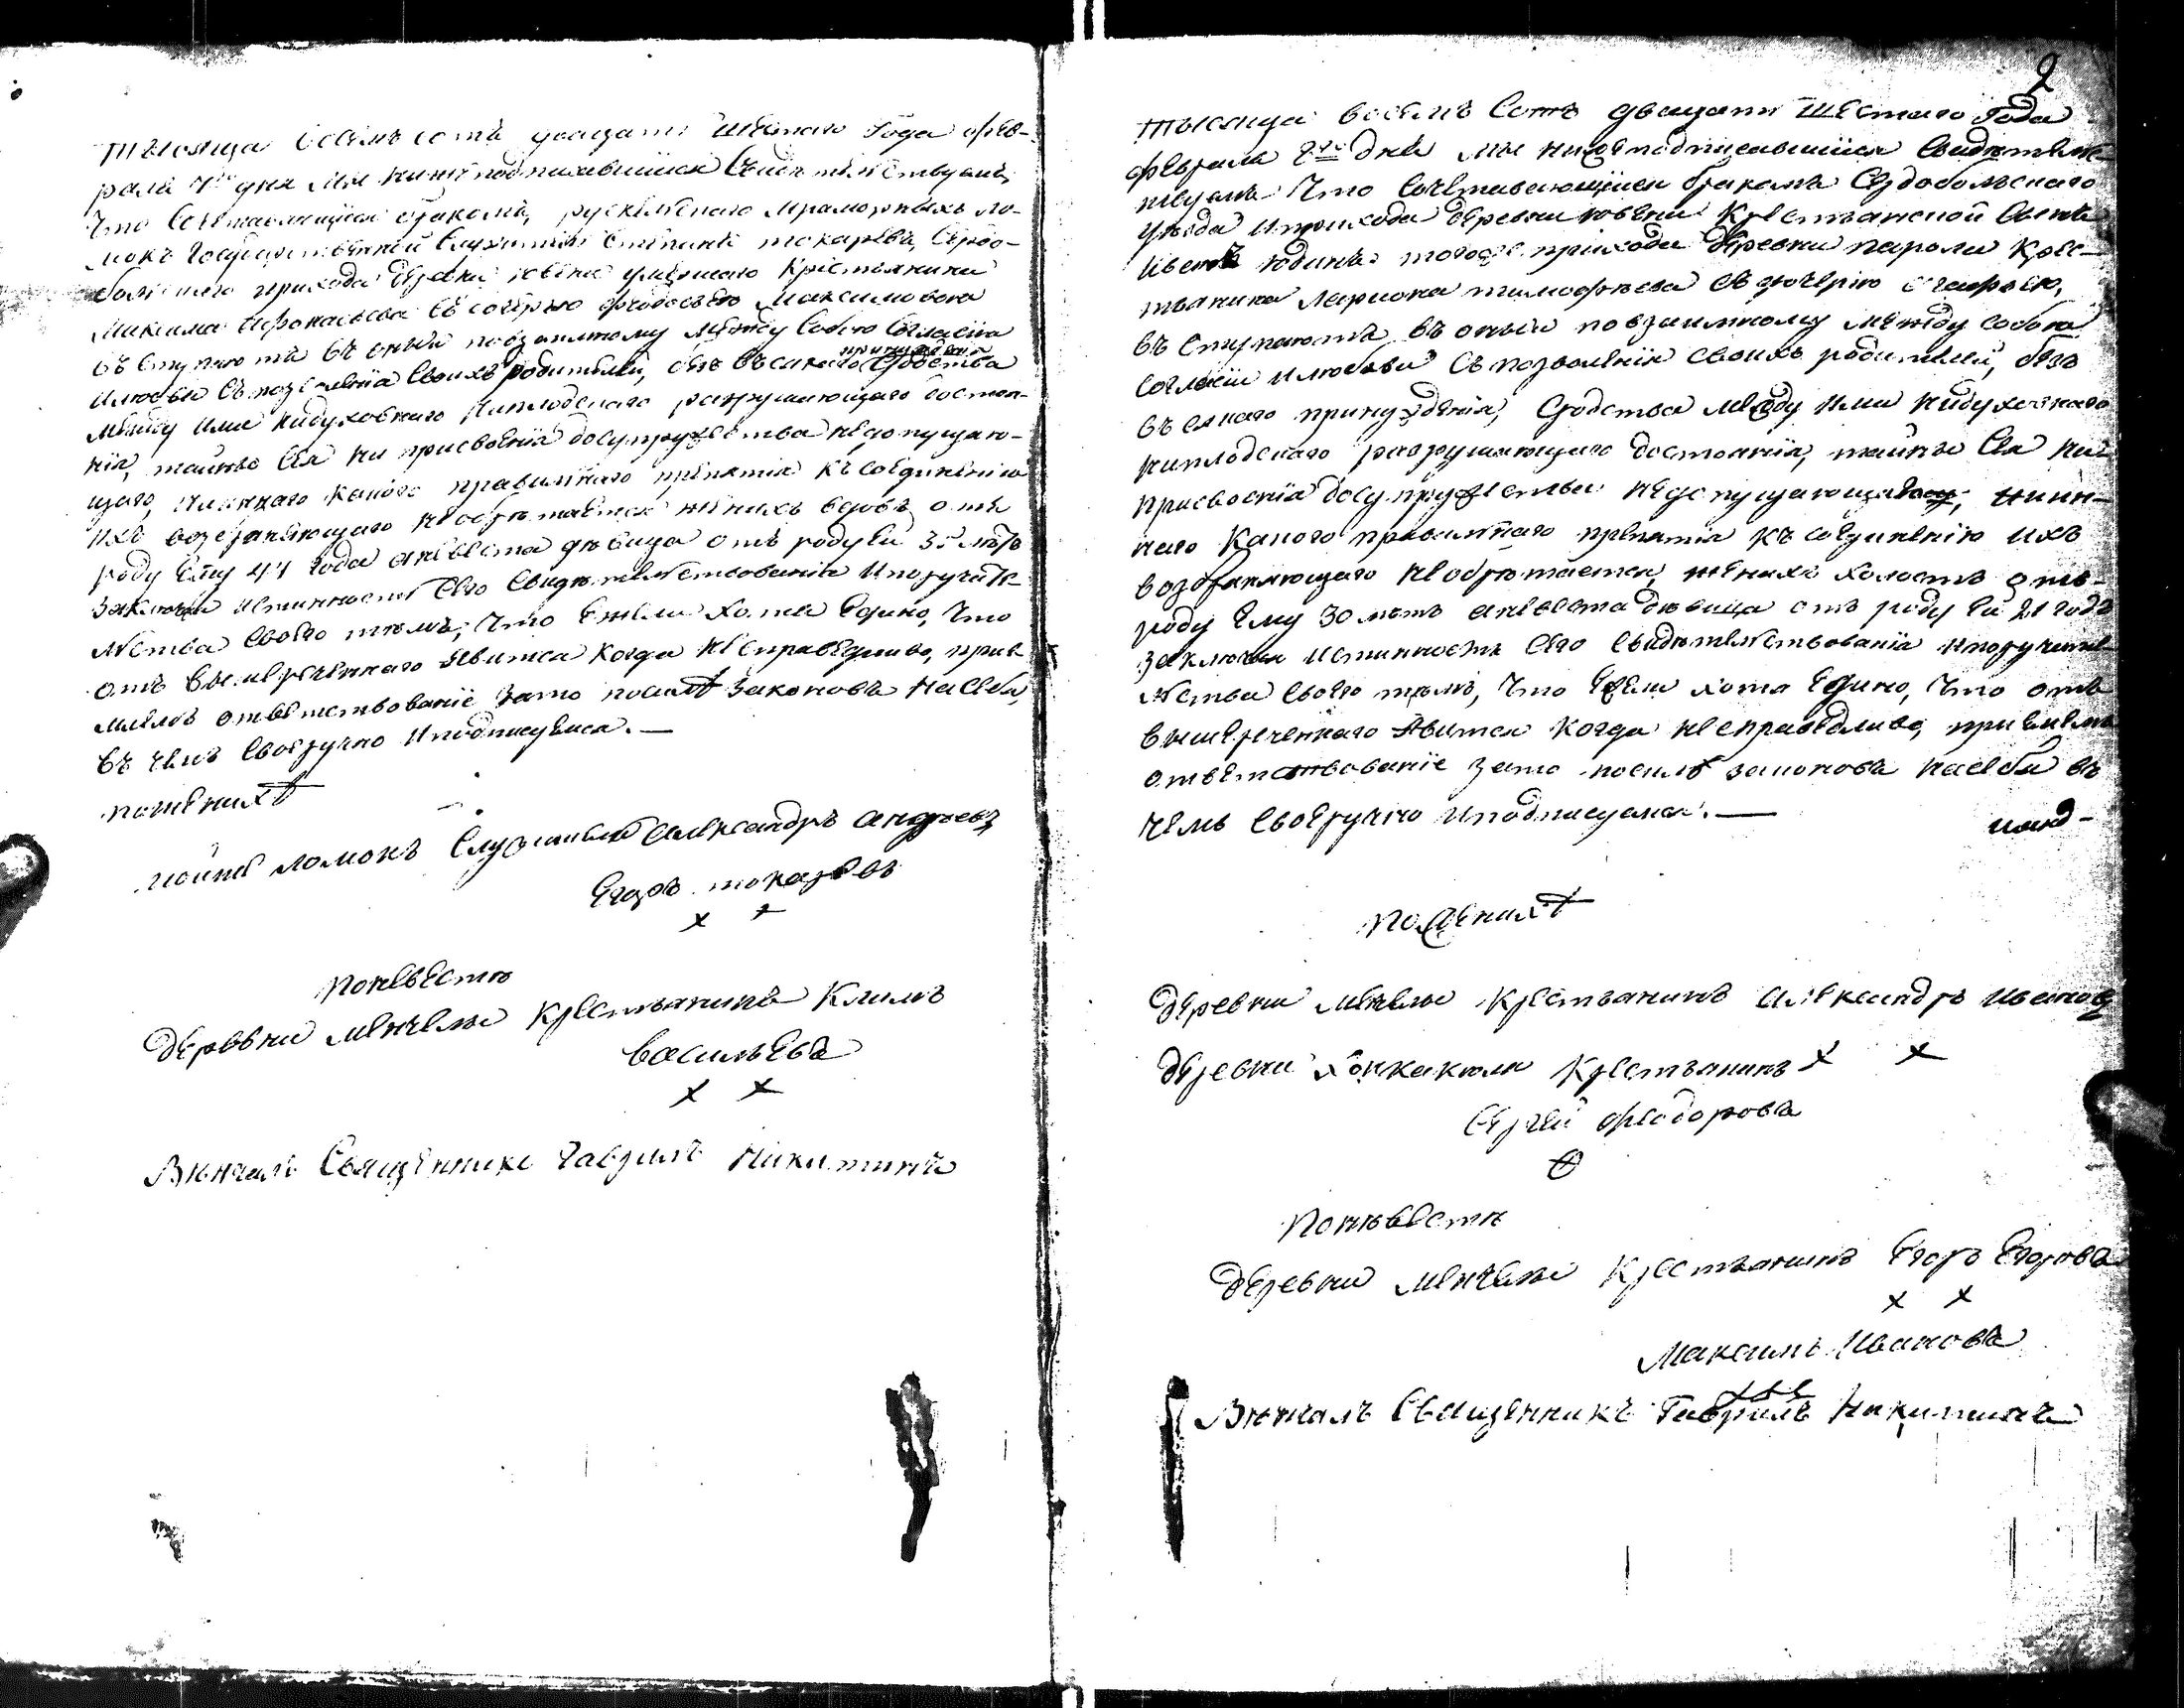 тысяща восемъ сотъ дватцать шестаго Года фев-
раля 7го дня Мы нижеподписавшийся Свидѣтельствуемъ,
Что Сочетавающійся бракомъ, рускѣльскаго Мраморныхъ ло-
мокъ Государственный Служитель Степанъ токаревъ, Сердо-
больскаго прихода деревни ювени умершаго Крестьянина
Максима Афонасьева съ дочерью феодосьею Максимовою
въ Ступаютъ въ оный повзаимному Между Собою Согласію
илюбви съ позволенія Своихъ родителей, безъ въсякаго принужденія Сродства
между ими нидуховнаго ниплодскаго разрушающаго достоя-
нія, тайнъво Сея ни присвоенія досупружества недопущаю-
щаго, ниинаго каного правильнаго препятія къ соединенію
ихъ возбраняющаго необрѣтается женихъ вдовъ отъ
роду Ему 44 года аневеста дѣвица отъ роду Ей 35 лѣтъ
заключая истинность Сего Свидѣтельствованія Ипоручите-
льства Своего тѣмъ, Что Ежели Хотя Едино, Что
отъ вышереченнаго Явитса когда несправедливо, прие-
млемъ ответствованіе зато посилѣ законовъ насебя,
въ чемъ Своеручно Иподписуемся. —
поженихѣ
ломокъ Служитель Александръ андреевъ
Егоръ токаревъ
х х
поневестѣ
деревни менчелы крестьянинъ Климъ
васильевъ
х х
Вѣнчалъ Священникъ Гаврилъ Никитинъ
2
тысяща восемъ Сотъ дватцать шестаго Года
февраля 7го дня мы нижеподписавшийся Свидѣтельс-
твуемъ Что Сочетавающійся бракомъ Сердобольскаго
уѣзда иприхода деревни ювени крестьянской Сынъ
юдинъ тогоже прихода деревни Крес-
тьянина Лариона тимофѣева съ дочерью
въ ступаютъ въ оный повзаимному между собою
согласіи илюбви съ позволенія своихъ родителей, безъ
въсякаго принужденія, Сродства между ими нидуховнаго
ниплодскаго разрушающаго достоянія, тайнъво Сея ни
присвоенія досупружества недопущающаго, ниин-
наго каного правильнаго препятія къ соединенію ихъ
возбраняющаго необрѣтается, женихъ холостъ отъ
роду Ему 30 лѣтъ аневеста дѣвица отъ роду Ей 21 годъ
заключая истинность Сего Свидѣтельствованія ипоручите-
льства Своего тѣмъ, Что Ежели хотя Едино, Что отъ
вышереченнаго Явится когда несправедливо, приемлемъ
ответствованіе зато посилѣ законовъ насебя въ
чемъ Своеручно иподписуемся. —
поженихѣ
деревни менчелы крестьянинъ Александръ ивановъ
деревни крестьянинъ х х
Сергей феодоровъ
поневестѣ
деревни менчелы крестьянинъ Егоръ Егоровъ
х х
Максимъ Ивановъ
ххх
Вѣнчалъ Священникъ Гаврилъ Никитинъ